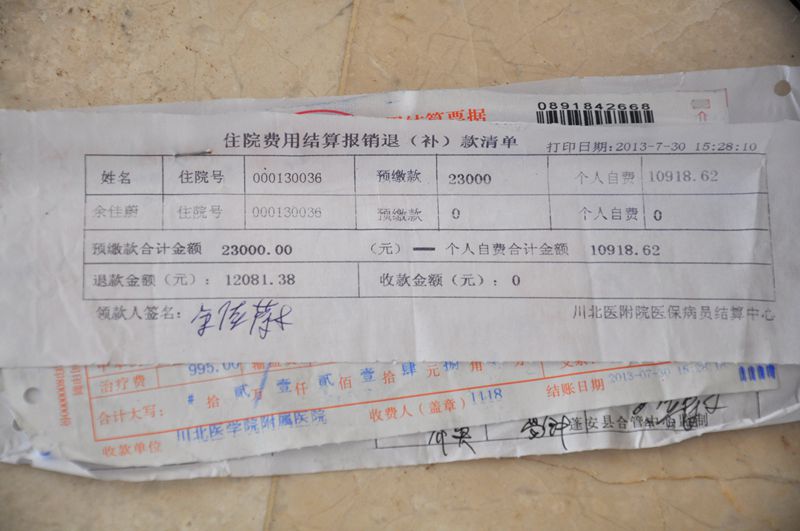 结算票据
0891842668
住院费用结算报销退(补)款清单 打印日期:2013-7-30 15:28:10
姓名 住院号 000130036 预缴款 23000 个人自费 10918.62
余佳蔚 住院号 000130036 预缴款 0 个人自费 0
预缴款合计金额 23000.00 (元)— 个人自费合计金额 10918.62
退款金额(元): 12081.38 收款金额(元): 0
领款人签名: 川北医附院医保病员结算中心
995.00
治疗费
合计大写: 拾 贰 万 壹 仟 贰 佰 壹 拾 肆 元 捌 角 结账日期 2013-07-30
收款单位 川北医学院附属医院 收费人(盖章) 1118
蓬安县合管